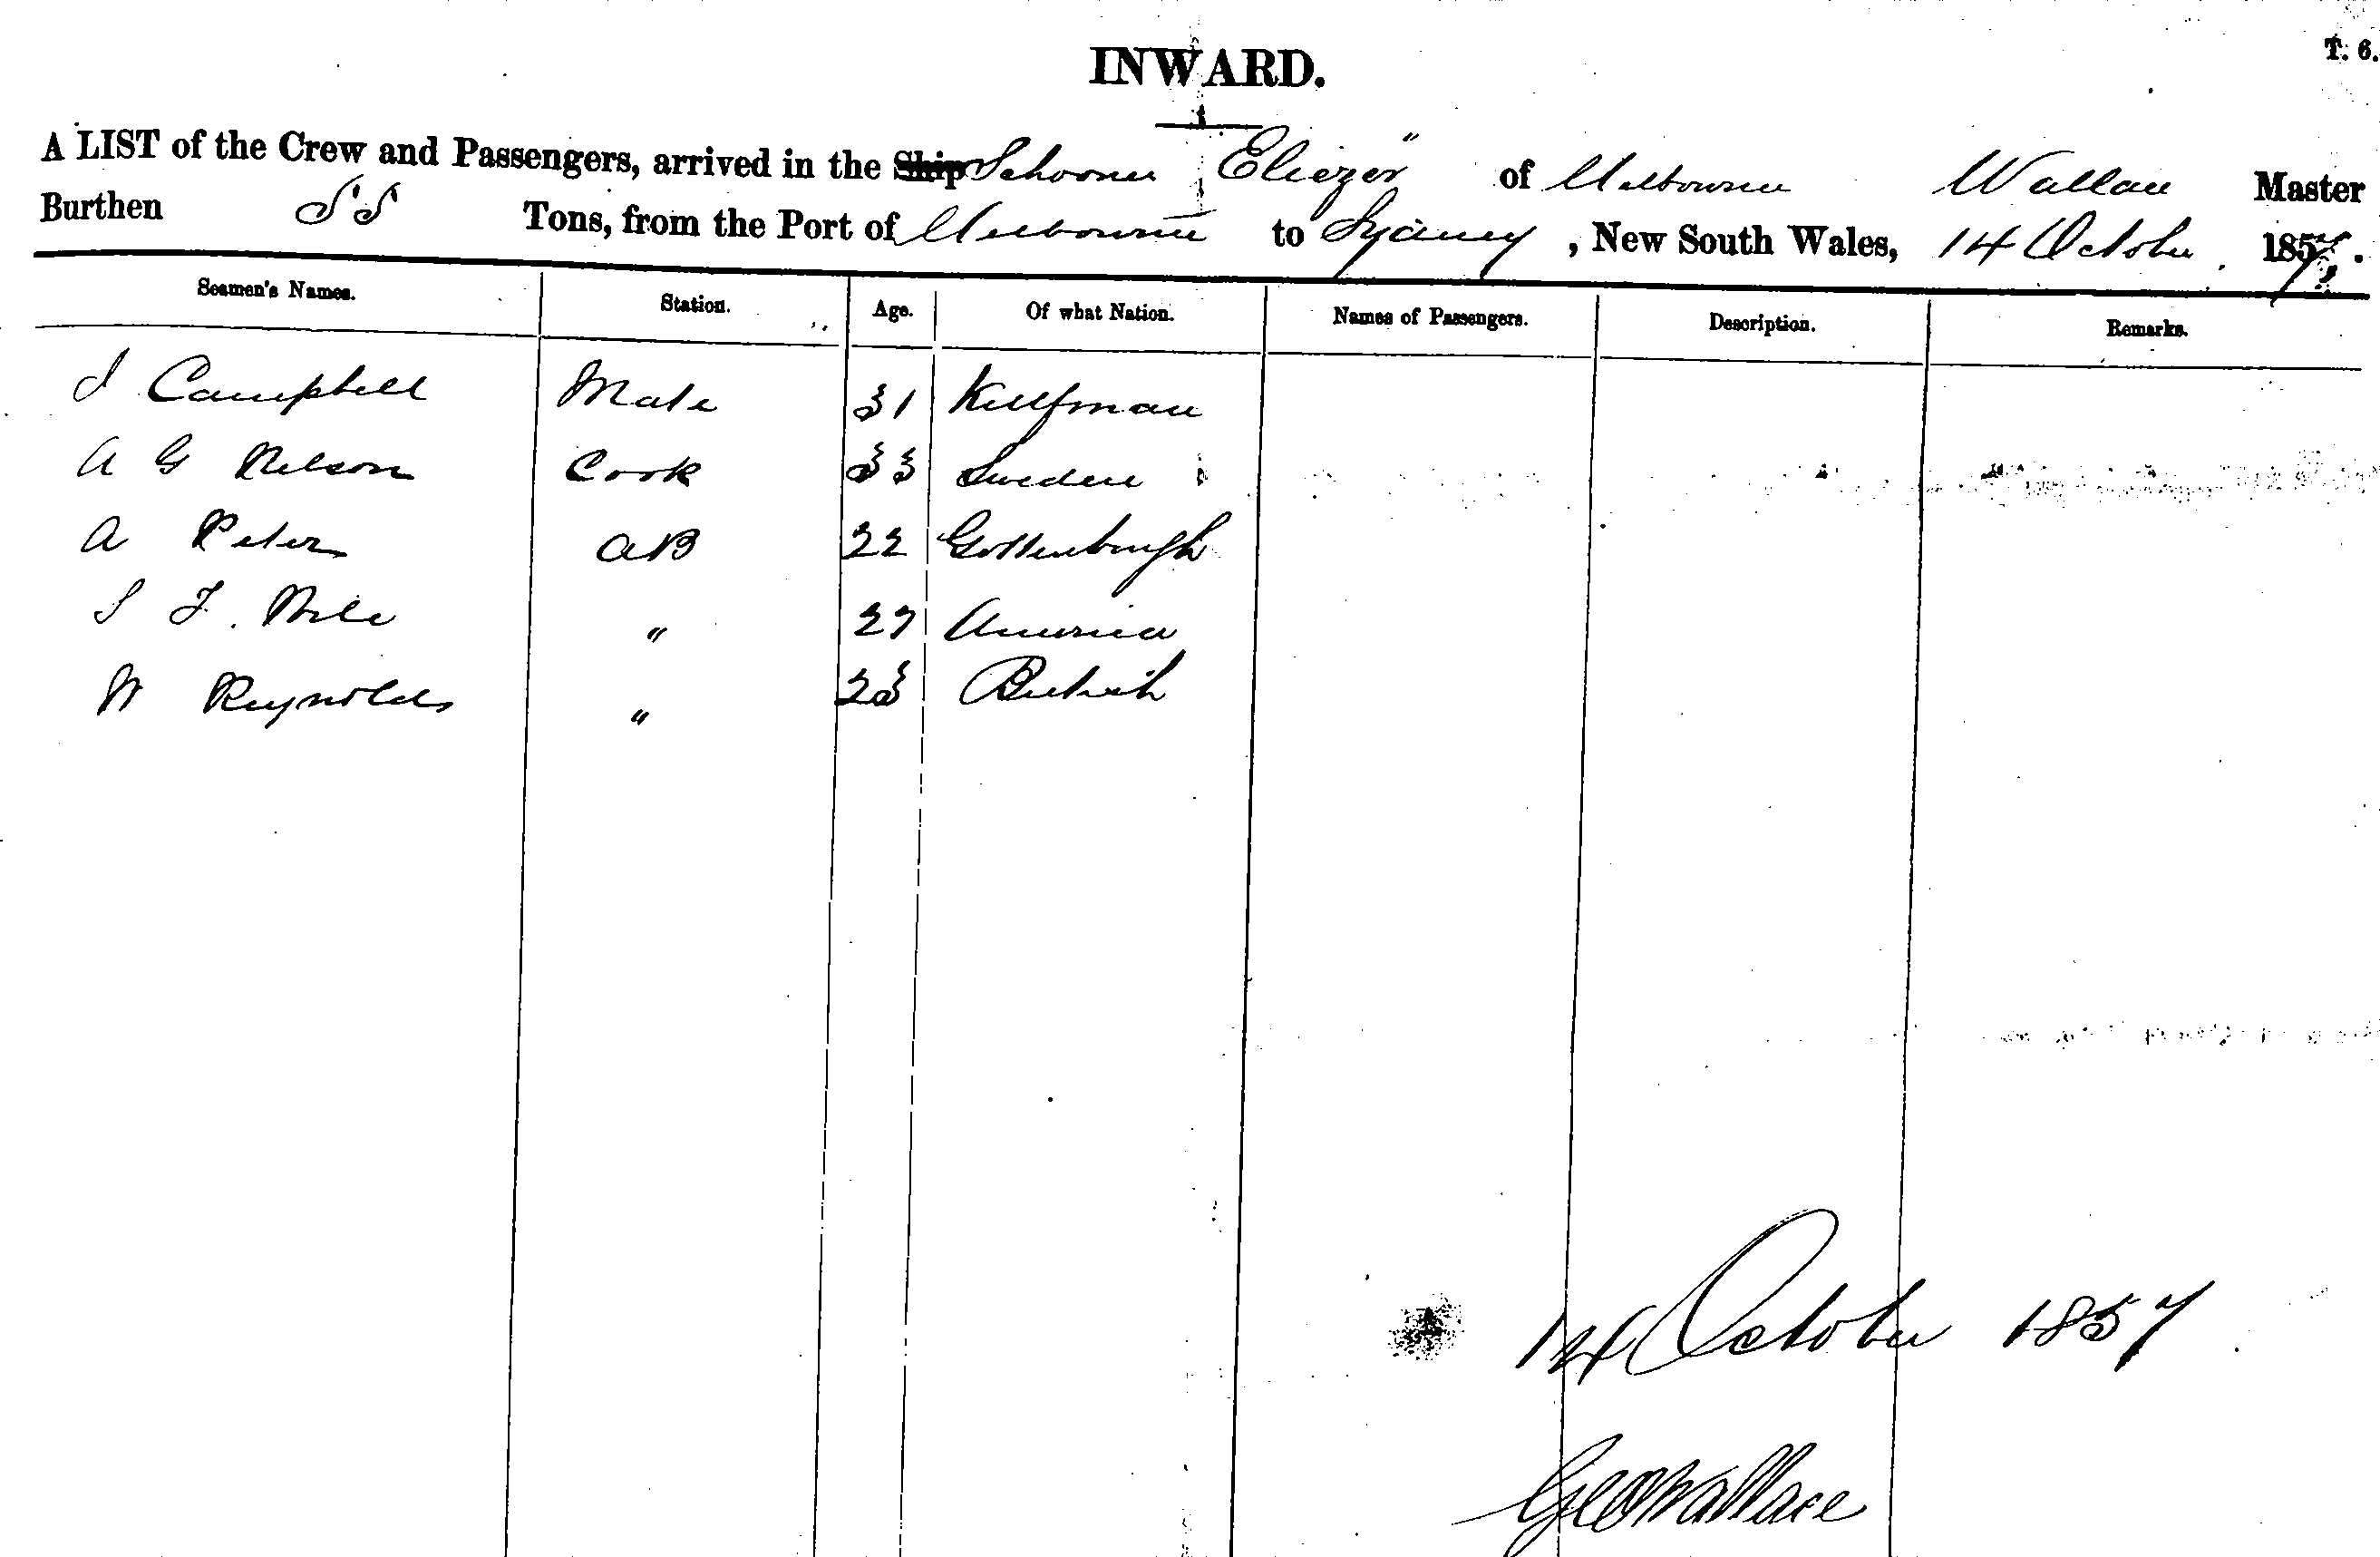 T. 6.
INWARD.
A LIST of the Crew and Passengers, arrived in the Ship Schooner Eliezer" of Melbourne Wallace Master
Burthen 55 Tons, from the Port of Melbourne to Sydney , New South Wales, 14 October 1857.
Seamen's Names. Station. Age. Of what Nation. Names of Passengers. Description. Remarks.
J Campbell Mate 31
A G Nelson Cook 33 Sweden
A Peters AB 22 Gottenburgh
J F. " 27 America
W Reynolds " 23 British
14 October 1857
Geo Wallace